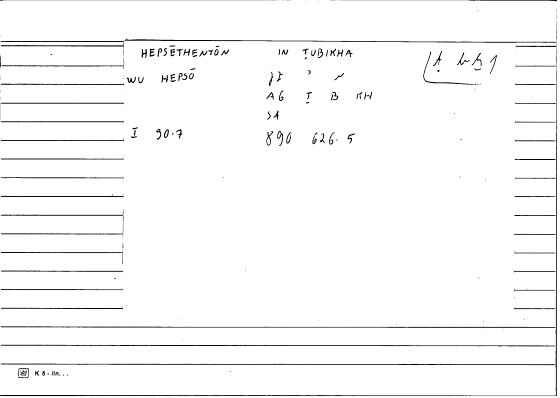 HEPSĒTHENTŌN IN ṬUBIKHA
WU HEPSŌ
AG Ṭ B KH
SA
I 90.7 890 626.5
K 5 - lin...